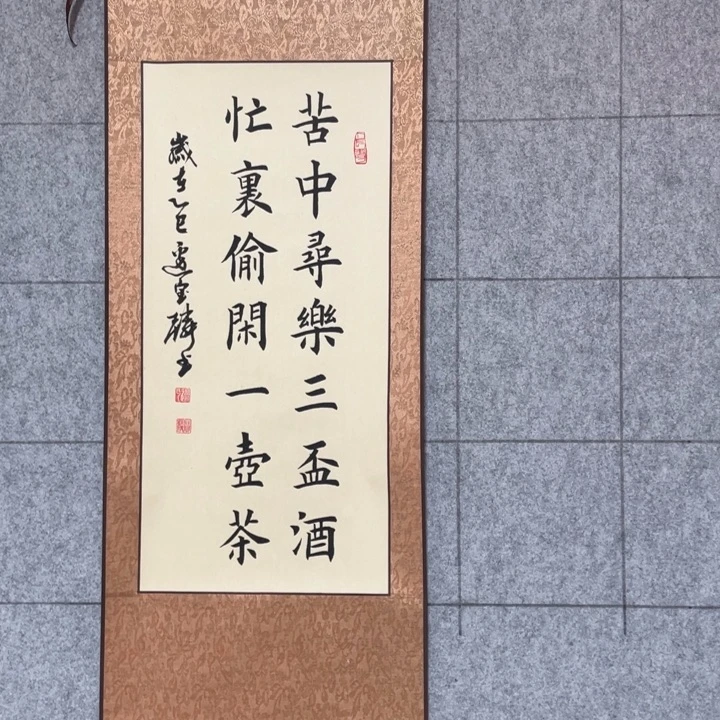 苦中尋樂三盃酒
忙裏偷閑一壺茶
歲在乙巳